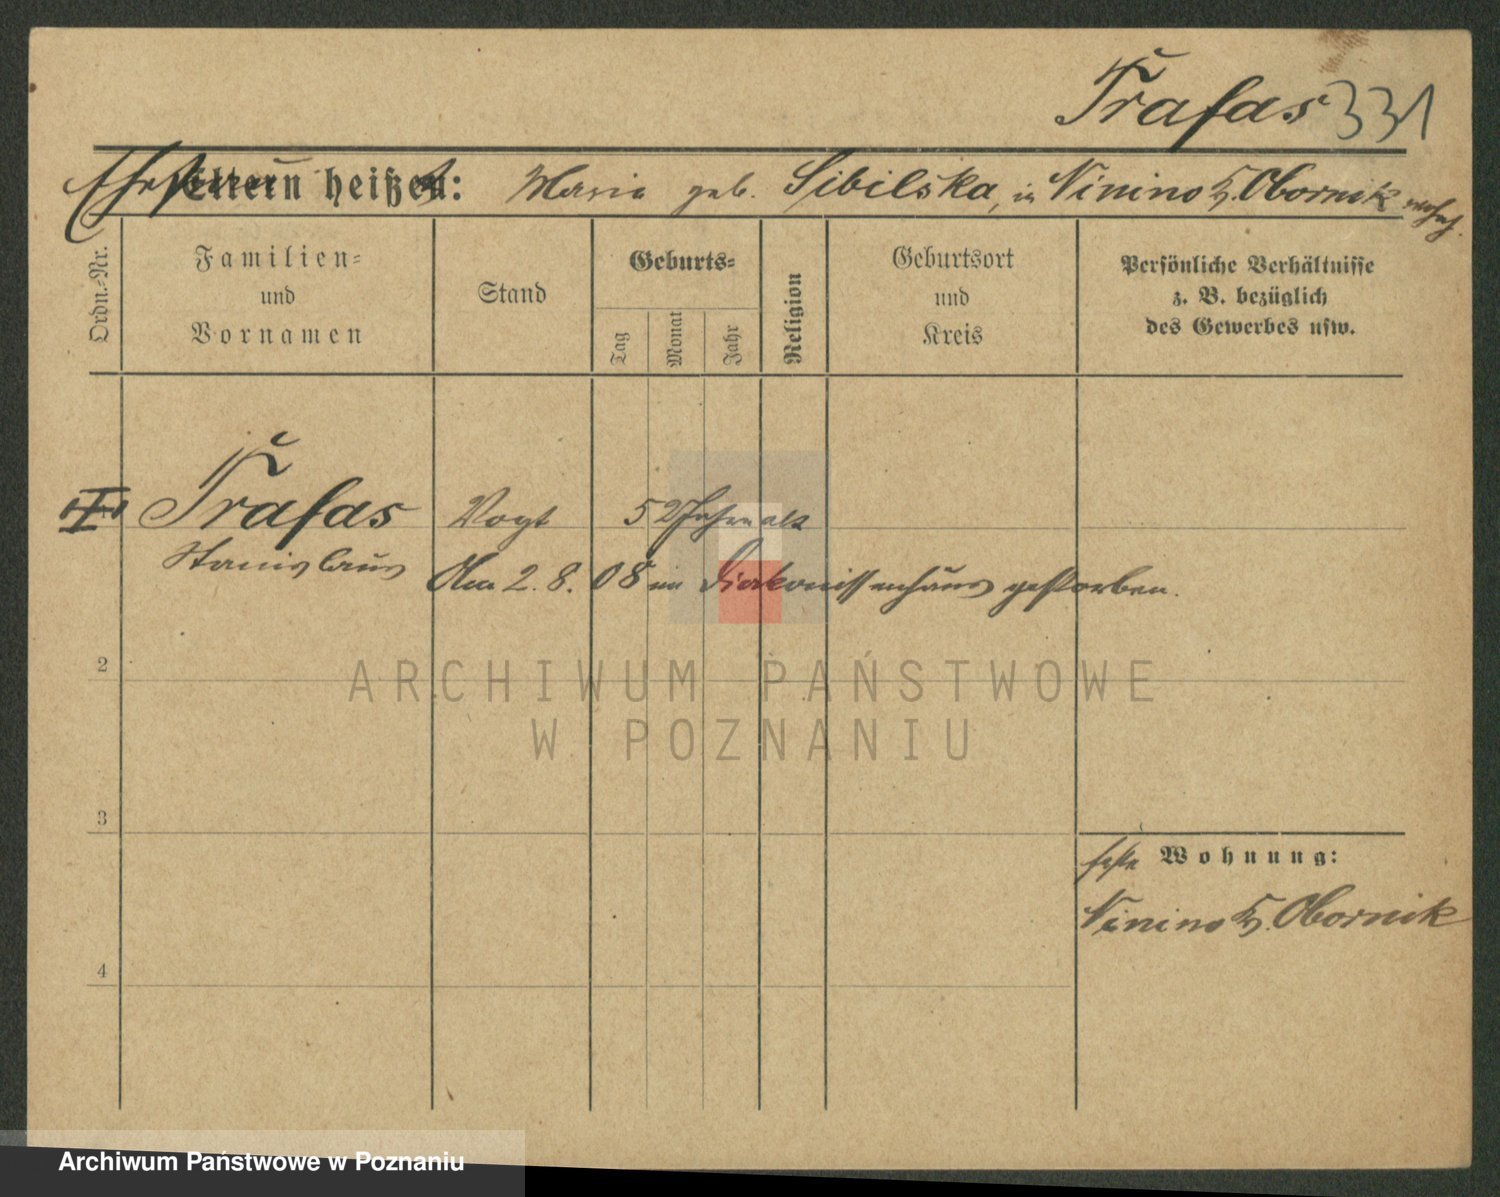 Trafas 331
Ehefrau heißt: Maria geb. Sibilska, in Ninino Kr. Obornik wohnh.
Ordn.-Nr.
Familien-
und
Vornamen
Stand
Geburts-
Tag
Monat
Jahr
Religion
Geburtsort
und
Kreis
Persönliche Verhältnisse
z. B. bezüglich
des Gewerbes usw.
Trafas Vogt 52 Jahre alt
Stanislaus Am 2. 8. 08 im Diakonissenhaus gestorben.
2
ARCHIWUM PAŃSTWOWE
W POZNANIU
3
feste Wohnung:
Ninino Kr. Obornik
4
Archiwum Państwowe w Poznaniu